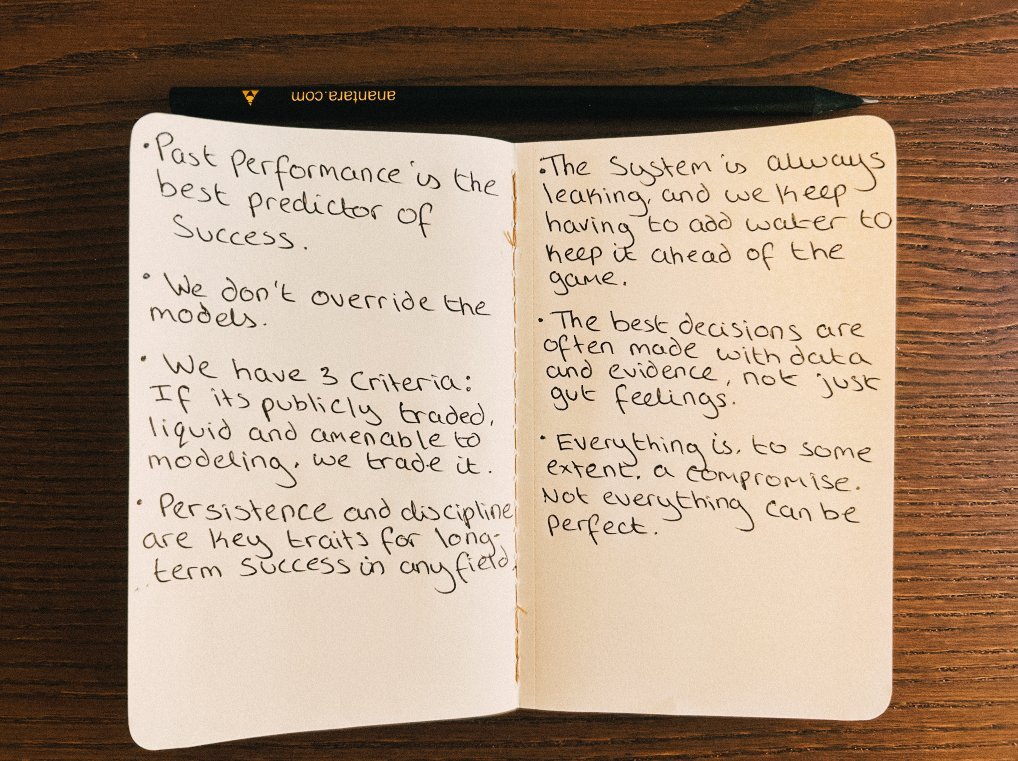 anantara.com
• Past Performance is the
best predictor of
Success.
• We don't override the
models.
• We have 3 Criteria:
If its publicly traded,
liquid and amenable to
modeling, we trade it.
• Persistence and discipline
are key traits for long-
term success in any field.
• The System is always
leaking, and we keep
having to add water to
keep it ahead of the
game.
• The best decisions are
often made with data
and evidence, not just
gut feelings.
• Everything is, to some
extent, a compromise.
Not everything can be
perfect.